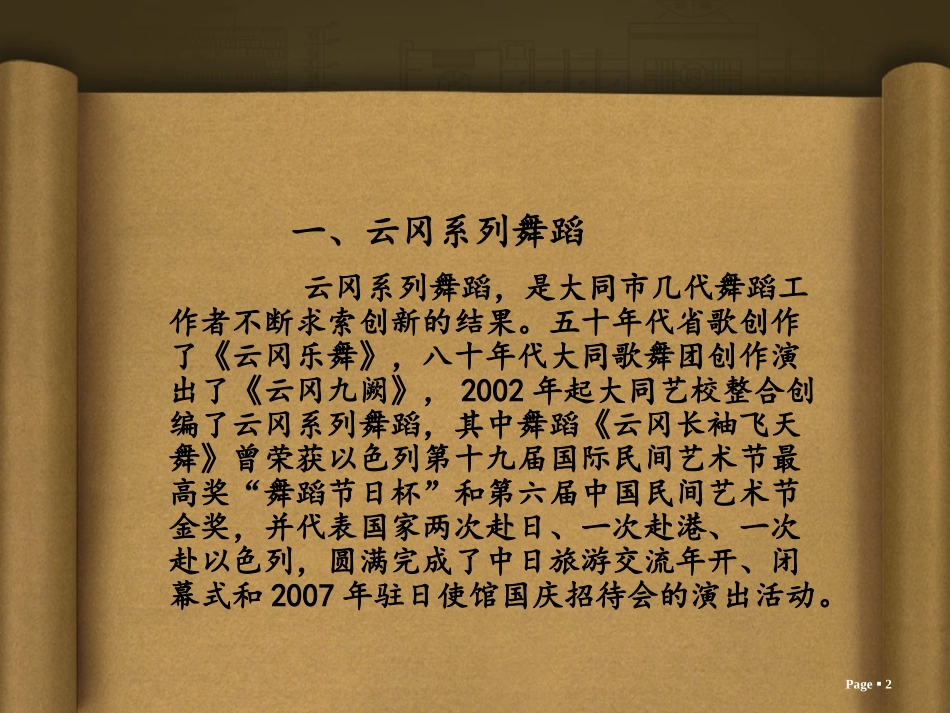 一、云冈系列舞蹈
云冈系列舞蹈，是大同市几代舞蹈工
作者不断求索创新的结果。五十年代省歌创作
了《云冈乐舞》，八十年代大同歌舞团创作演
出了《云冈九阙》， 2002 年起大同艺校整合创
编了云冈系列舞蹈，其中舞蹈《云冈长袖飞天
舞》曾荣获以色列第十九届国际民间艺术节最
高奖“舞蹈节日杯”和第六届中国民间艺术节
金奖，并代表国家两次赴日、一次赴港、一次
赴以色列，圆满完成了中日旅游交流年开、闭
幕式和 2007 年驻日使馆国庆招待会的演出活动。
Page ▪ 2